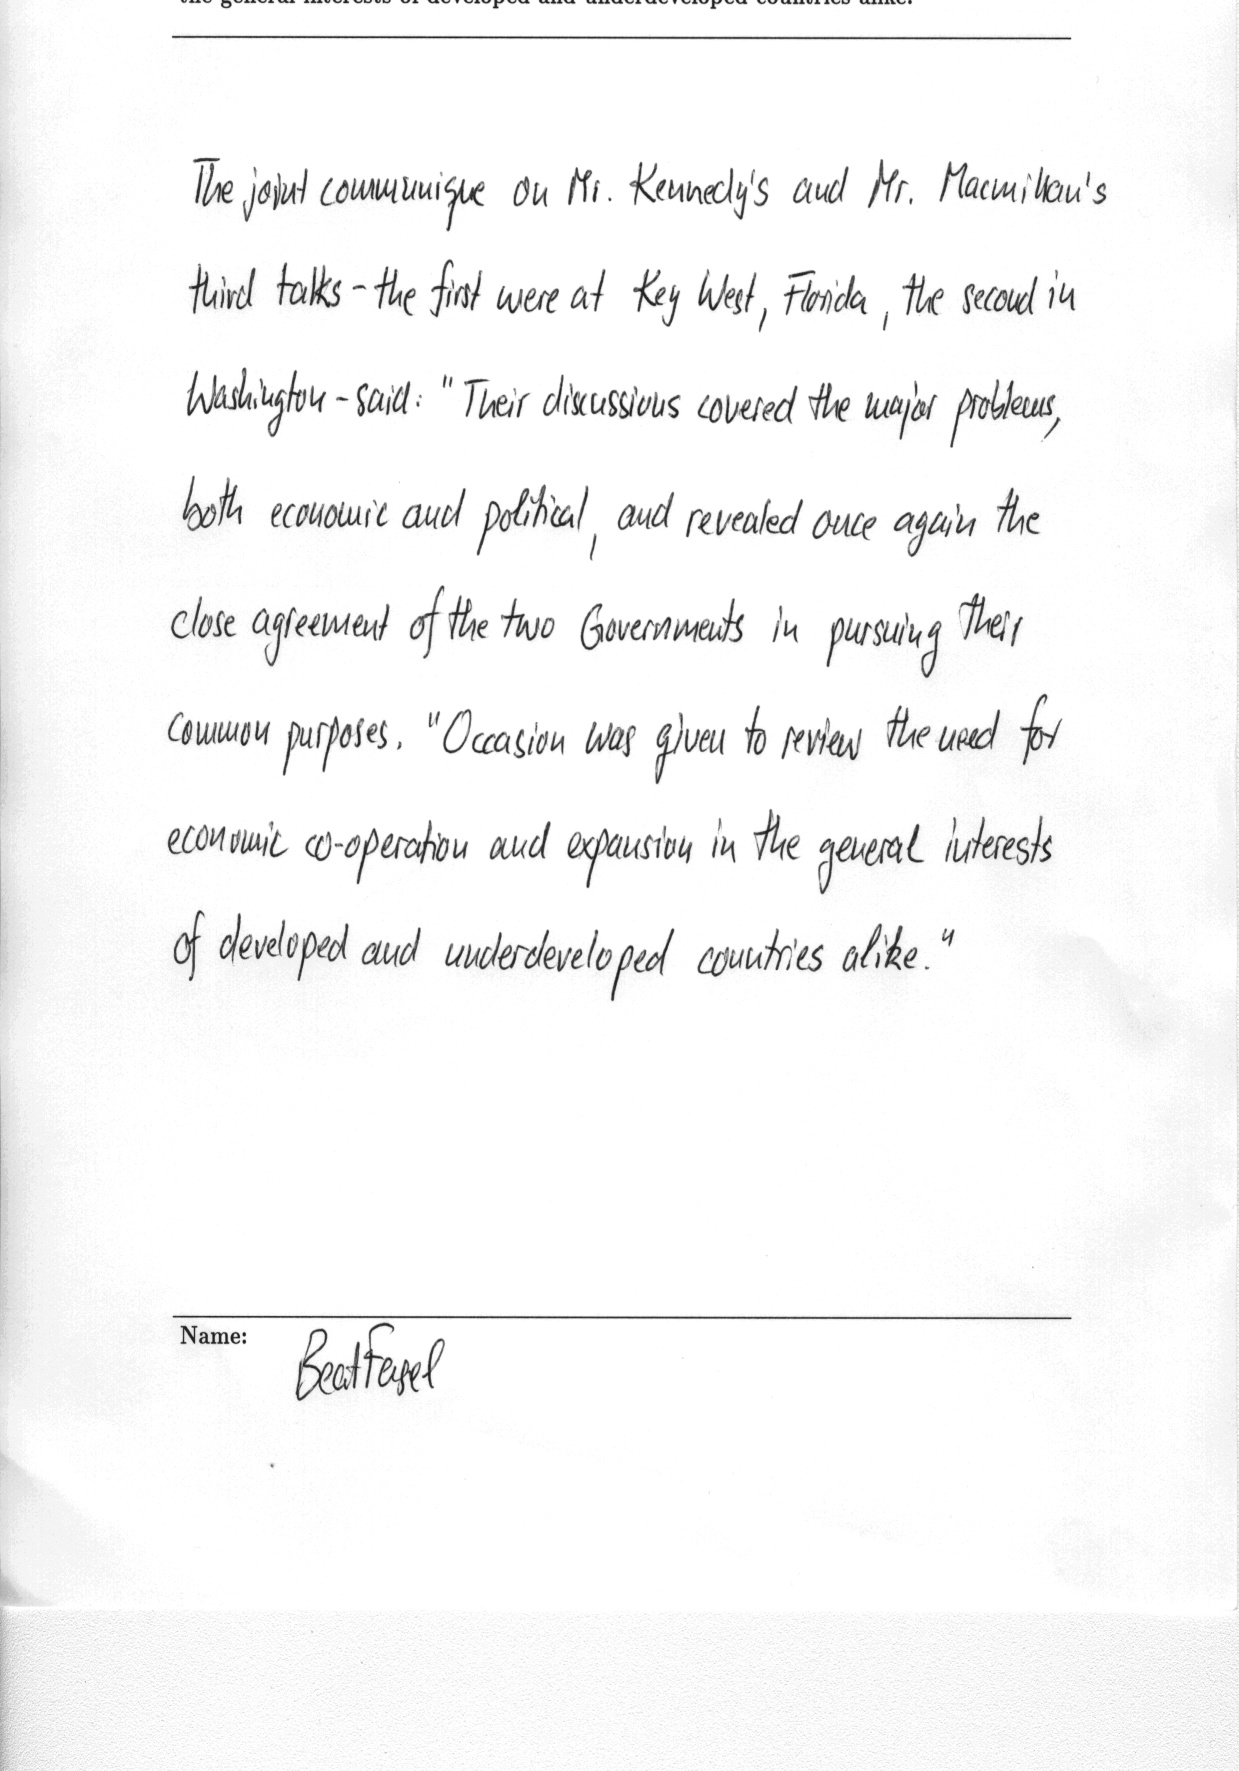 the general interests of developed and underdeveloped countries alike.
The joint communique on Mr. Kennedy's and Mr. Macmillan's
third talks - the first were at Key West, Florida, the second in
Washington - said: "Their discussions covered the major problems,
both economic and political, and revealed once again the
close agreement of the two Governments in pursuing their
common purposes. "Occasion was given to review the need for
economic co-operation and expansion in the general interests
of developed and underdeveloped countries alike."
Name:
Beat